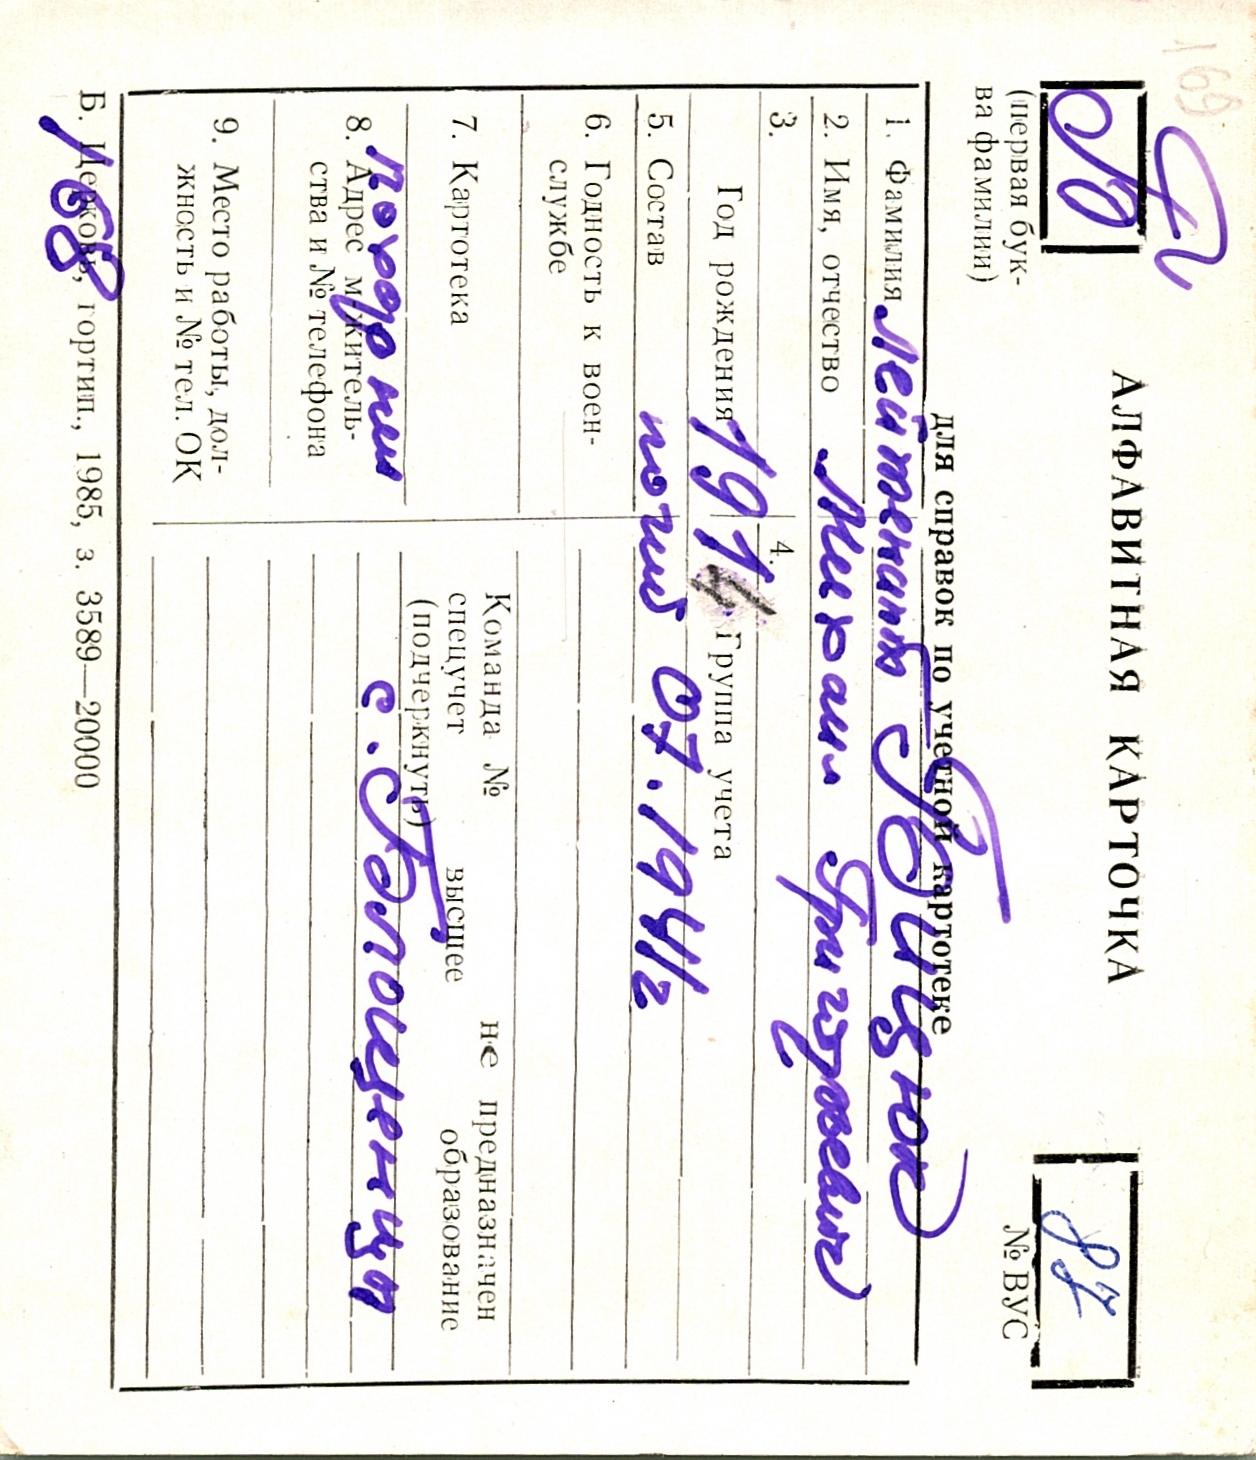 169
П
В
(первая бук-
ва фамилии)
АЛФАВИТНАЯ КАРТОЧКА
для справок по учетной картотеке
87
№ ВУС
1. Фамилия Лейтенант Бицюк
2. Имя, отчество Михаил Григорьевич
3. 4.
Год рождения 1914 Группа учета
5. Состав погиб 07.1944г
6. Годность к воен-
службе
7. Картотека
Команда № не предназначен
спецучет высшее образование
(подчеркнуть)
похоронен с.
8. Адрес м. житель-
ства и № телефона
9. Место работы, дол-
жность и № тел. ОК
Б. Церковь, гортип., 1985, з. 3589—20000
168